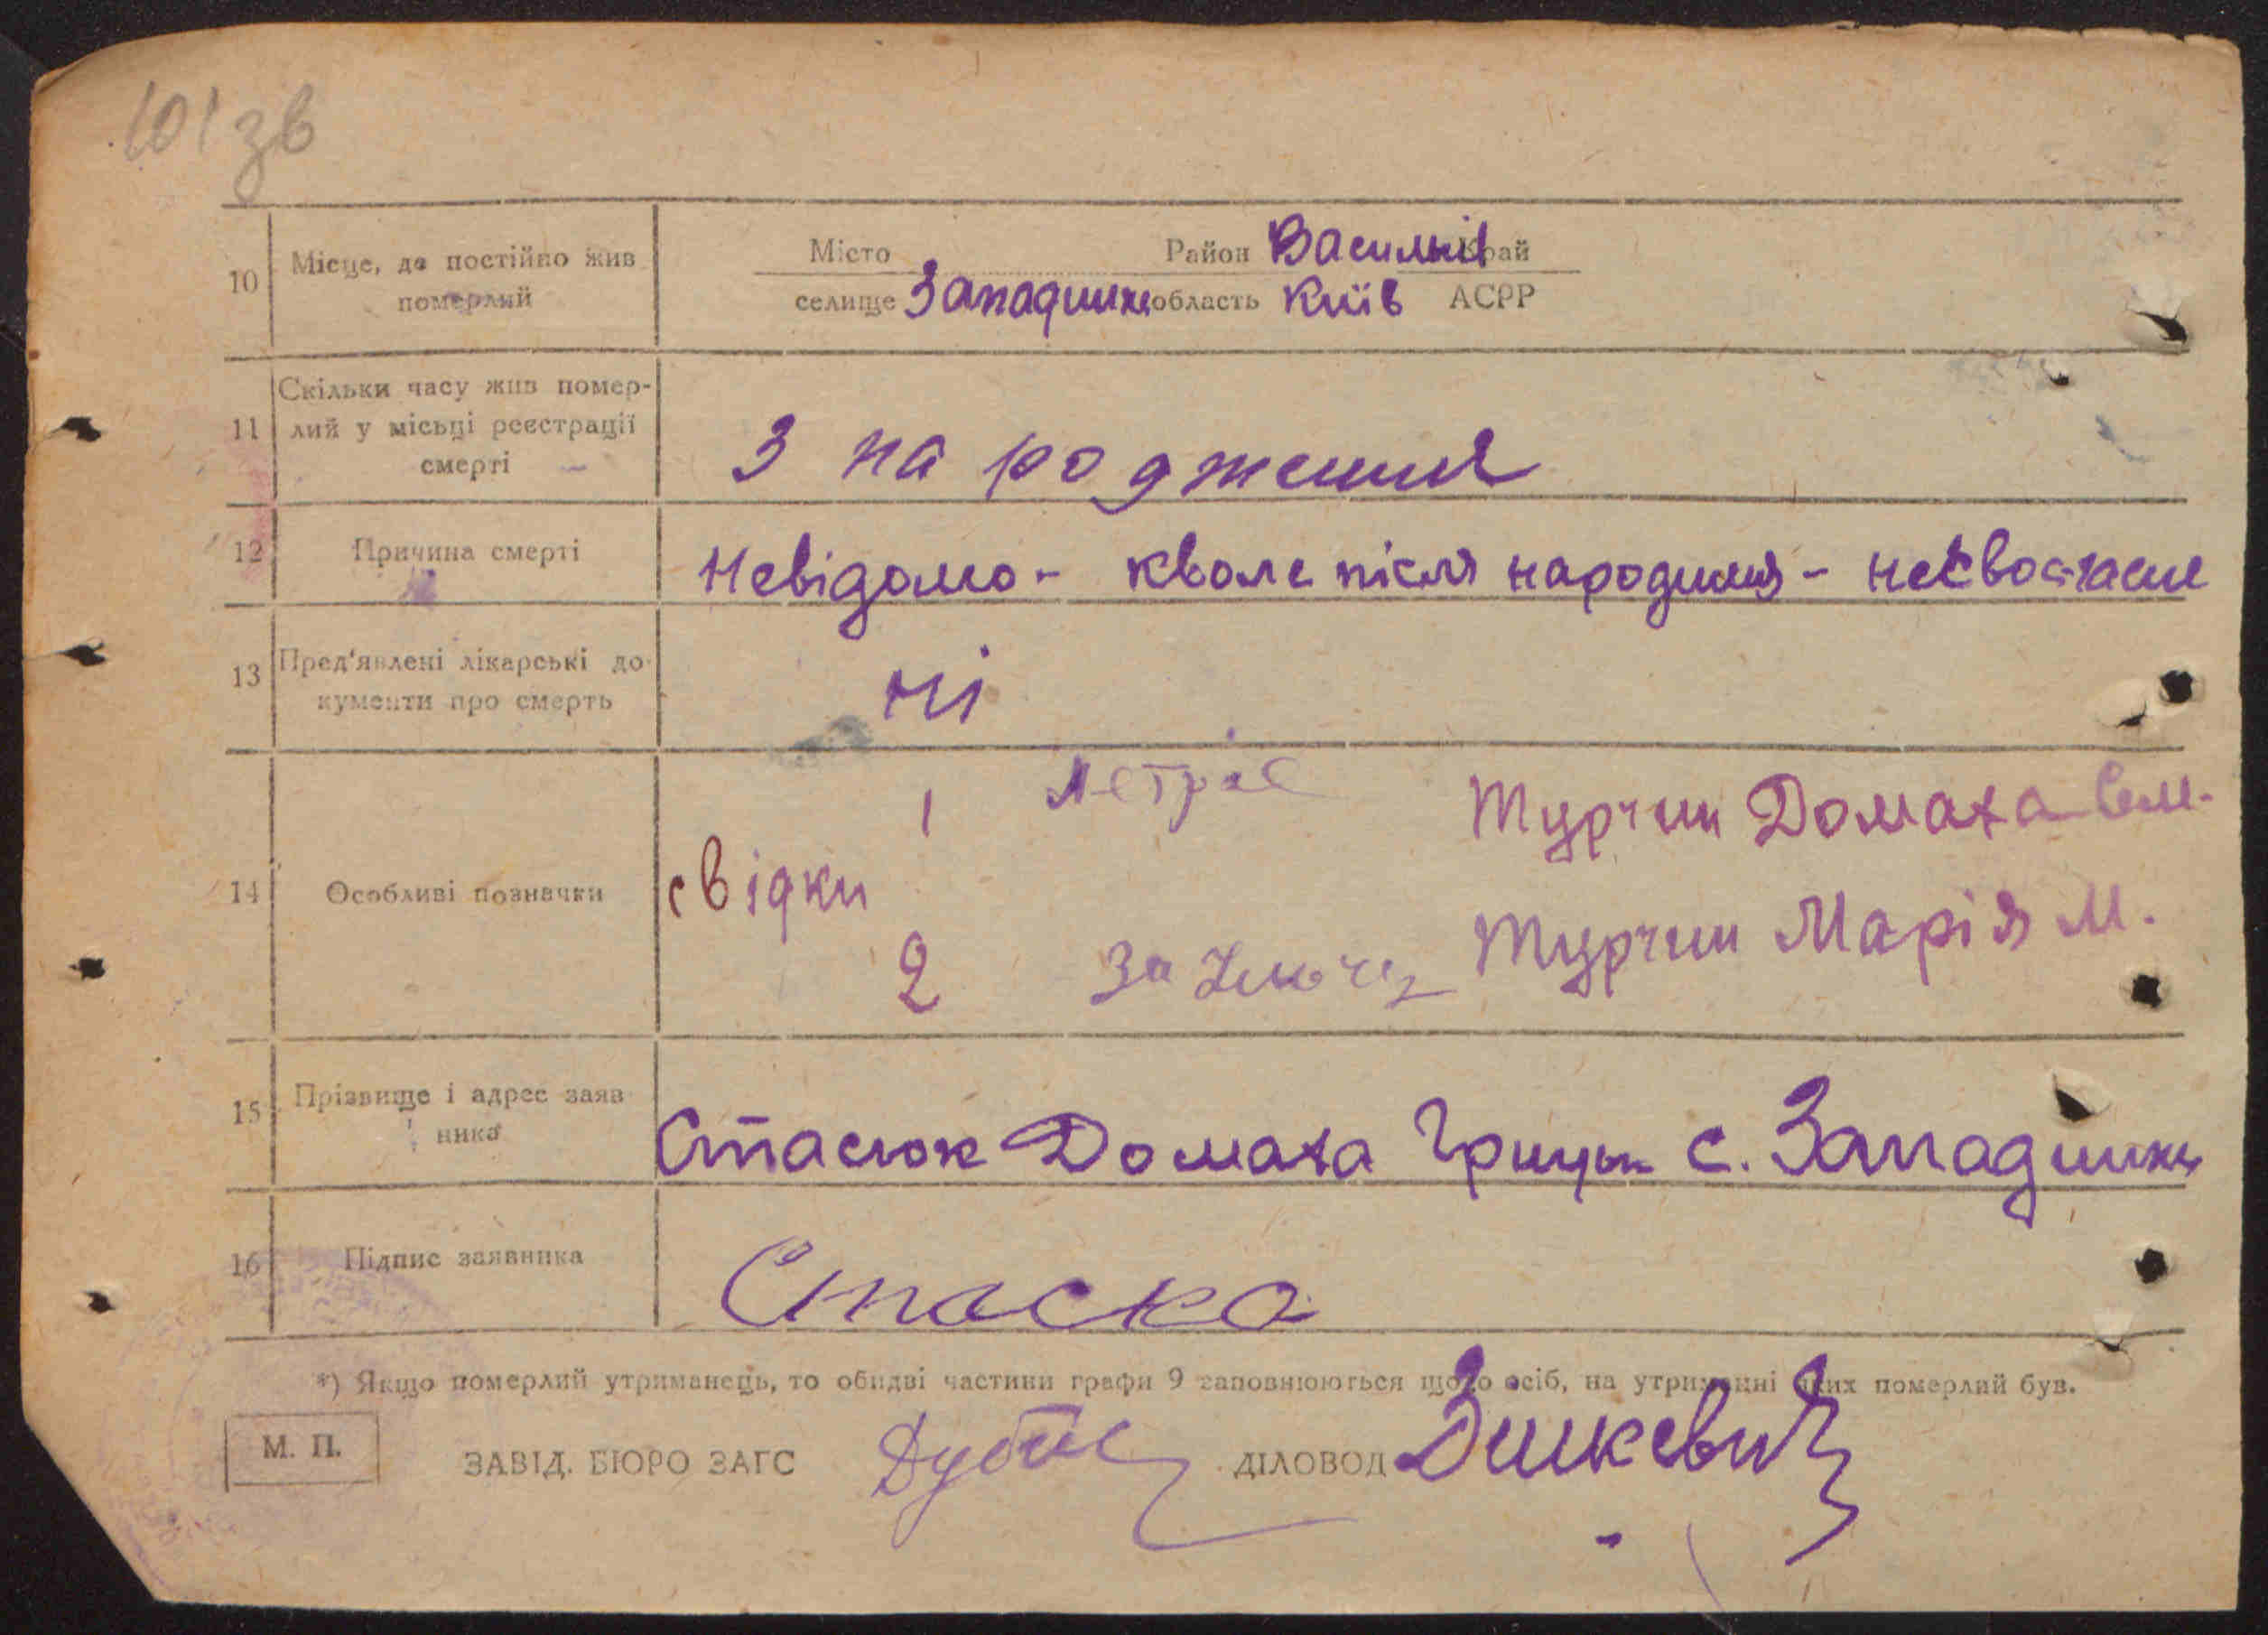 101 зв
10 Місце, де постійно жив померлий
Місто Район Васильків Край
селище Западинка область Київ АСРР
11 Скільки часу жив помер-
лий у місьці реєстрації
смерті
З на родження
12 Причина смерті
Невідомо - кволе після народження - несвоєчасне
13 Пред'явлені лікарські до-
кументи про смерть
ні
14 Особливі позначки
свідки
1 Турчин Домаха Сем.
2 Турчин Марія М.
15 Прізвище і адрес заяв
ника
Стасюк Домаха Грицьк с. Западинка
16 Підпис заявника
Стаска
*) Якщо померлий утриманець, то обидві частини графи 9 заповнюються щодо осіб, на утриманні яких померлий був.
М. П.
ЗАВІД. БЮРО ЗАГС ДІЛОВОД